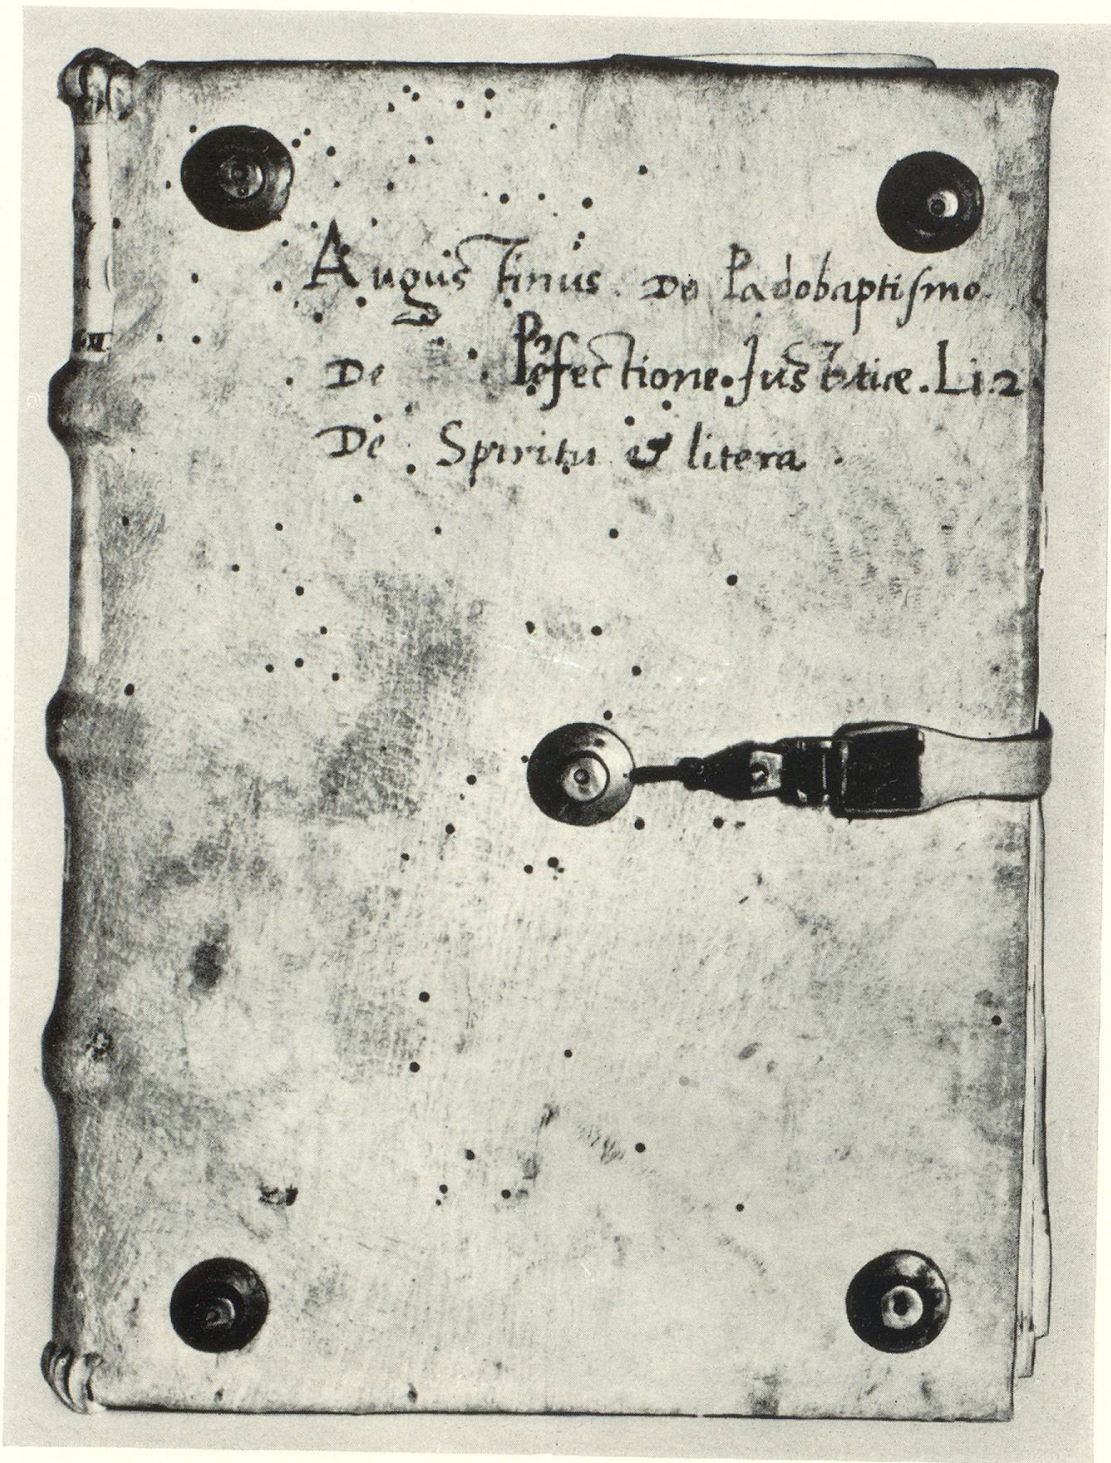 Augustinus. De Pædobaptismo.
De Perfectione. Justitiæ. Li. 2
De Spiritu & litera.